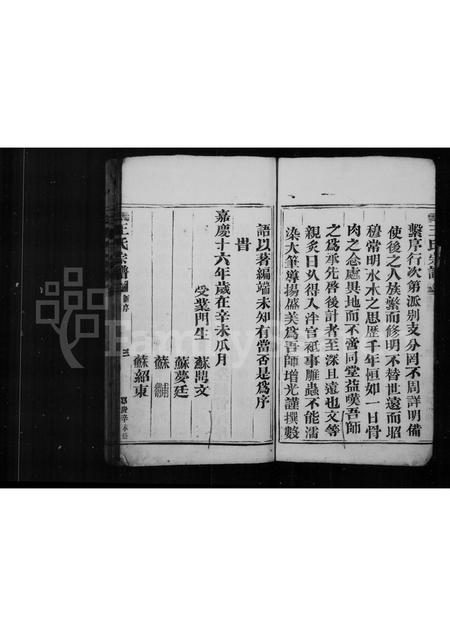 王氏宗譜
繫序行次第派别支分罔不周詳明備
使後之人族繁而修明不替世遠而昭
穆常明水木之思歷千年恒如一日骨
肉之念處異地而不啻同堂益嘆吾師
之為承先啓後計者至深且遠也文等
親炙日久得入泮宫秪事雕蟲不能濡
染大筆導揚盛美為吾師增光謹撰數
語以著編端未知有當否是為序
嘉慶十六年歲在辛未瓜月
受業門生
蘇開文
蘇
蘇夢廷
蘇紹東
王氏宗譜
三
Family